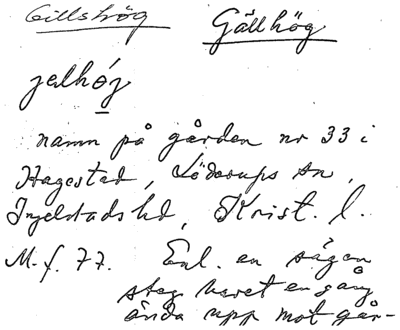 Gillshög Gällhög
jælhój
namn på gården nr 33 i
Hagestad, Löderups sn,
Ingelstads hd, Krist. l.
M. f. 77. Enl. en sägen
steg havet en gång
ända upp mot går-